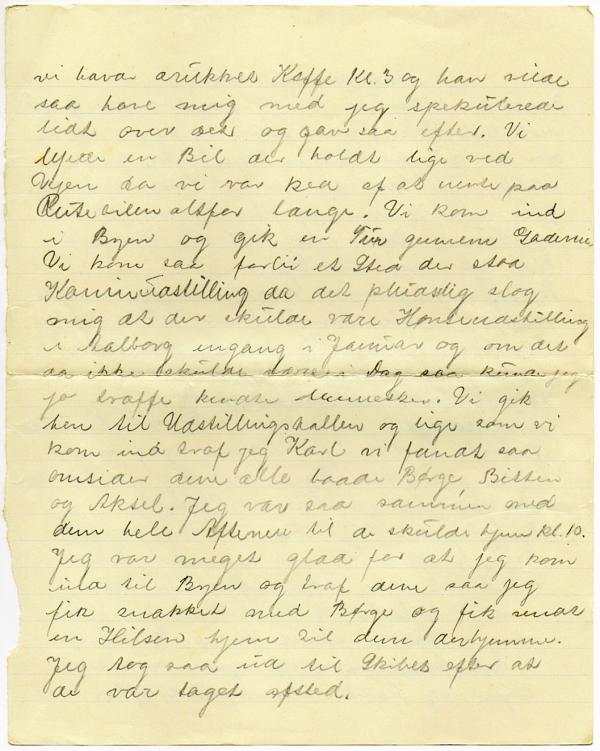 vi havde drukket Kaffe Kl. 3 og han vilde
saa have mig med jeg spekulerede
lidt over det og gav saa efter. Vi
lejede en Bil der holdt lige ved
Vejen da vi var ked af at vente paa
Rutebilen altfor længe. Vi kom ind
i Byen og gik en Tur gennem Gaderne
Vi kom saa forbi et Sted der stod
Kaninudstilling da det pludslig slog
mig at der skulde være Hønseudstilling
i Aalborg engang i Januar og om det
da ikke skulde være i Dag saa kunde jeg
jo træffe kendte Mennesker. Vi gik
hen til Udstillingshallen og lige som vi
kom ind traf jeg Karl vi fandt saa
omsider dem alle baade Børge Bitten
og Aksel. Jeg var saa sammen med
dem hele Aftenen til de skulde hjem Kl. 10.
Jeg var meget glad for at jeg kom
ind til Byen og traf dem saa jeg
fik snakket med Børge og fik sendt
en Hilsen hjem til dem derhjemme.
Jeg tog saa ud til Skibet efter at
de var taget afsted.